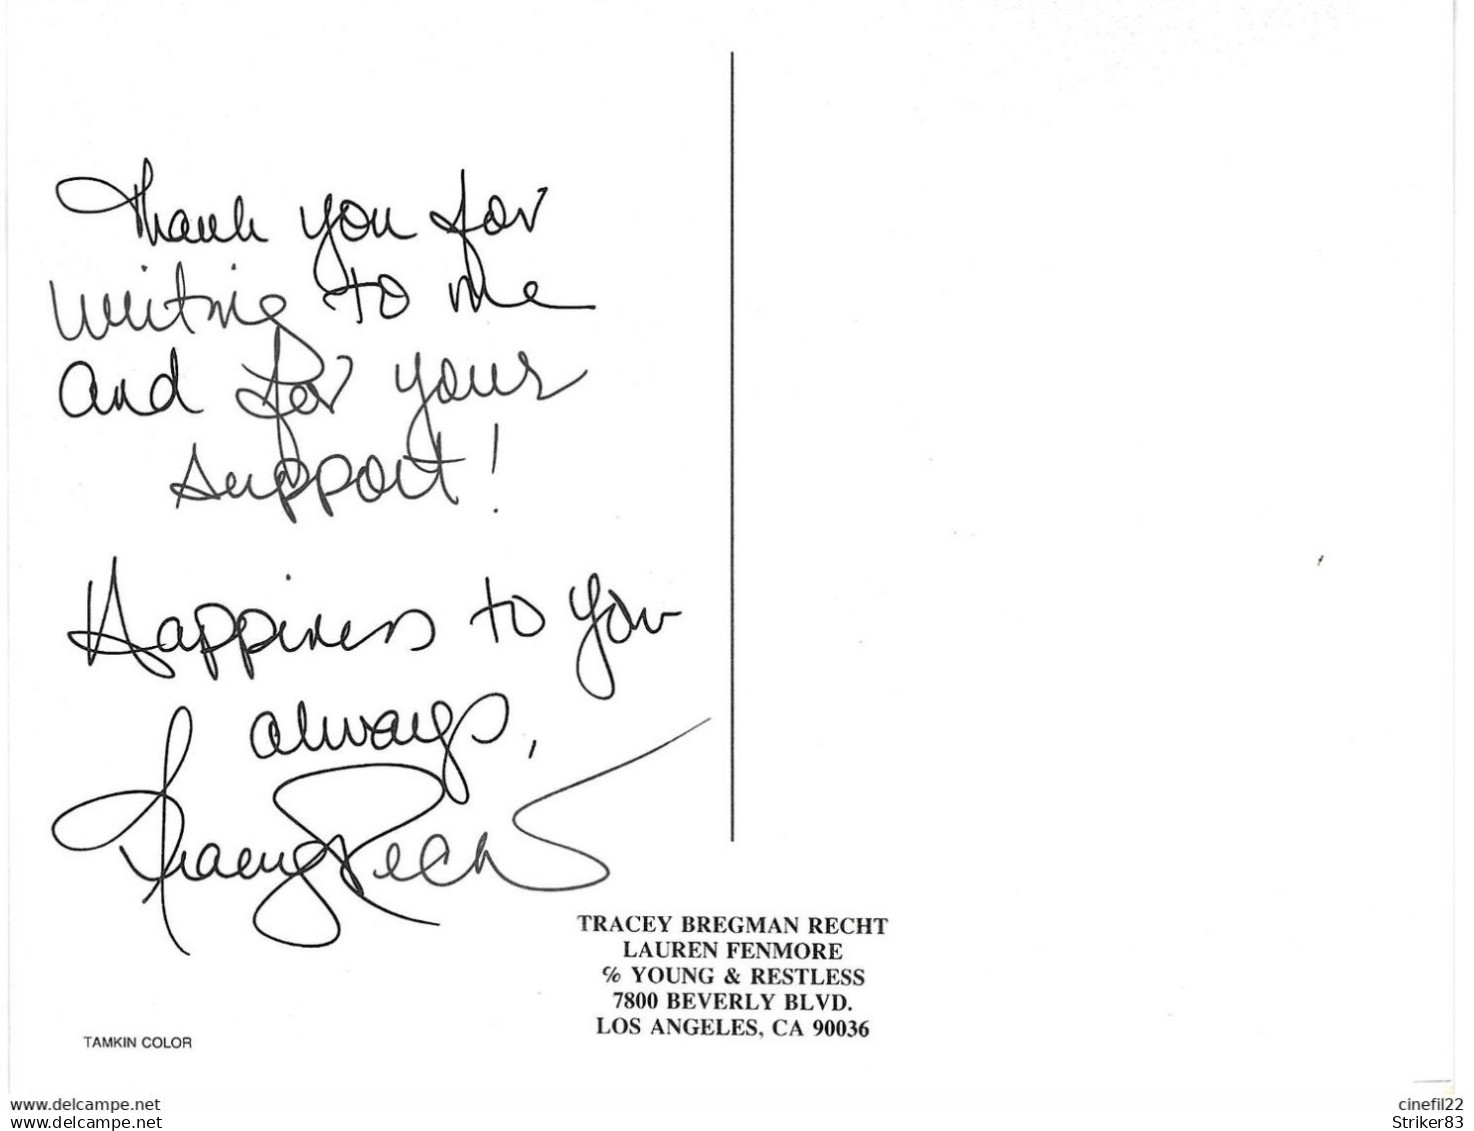 Thank you for
writing to me
and for your
support!
Happiness to you
always,
Tracey Recht
TRACEY BREGMAN RECHT
LAUREN FENMORE
℅ YOUNG & RESTLESS
7800 BEVERLY BLVD.
LOS ANGELES, CA 90036
TAMKIN COLOR
www.delcampe.net
www.delcampe.net
cinefil22
Striker83